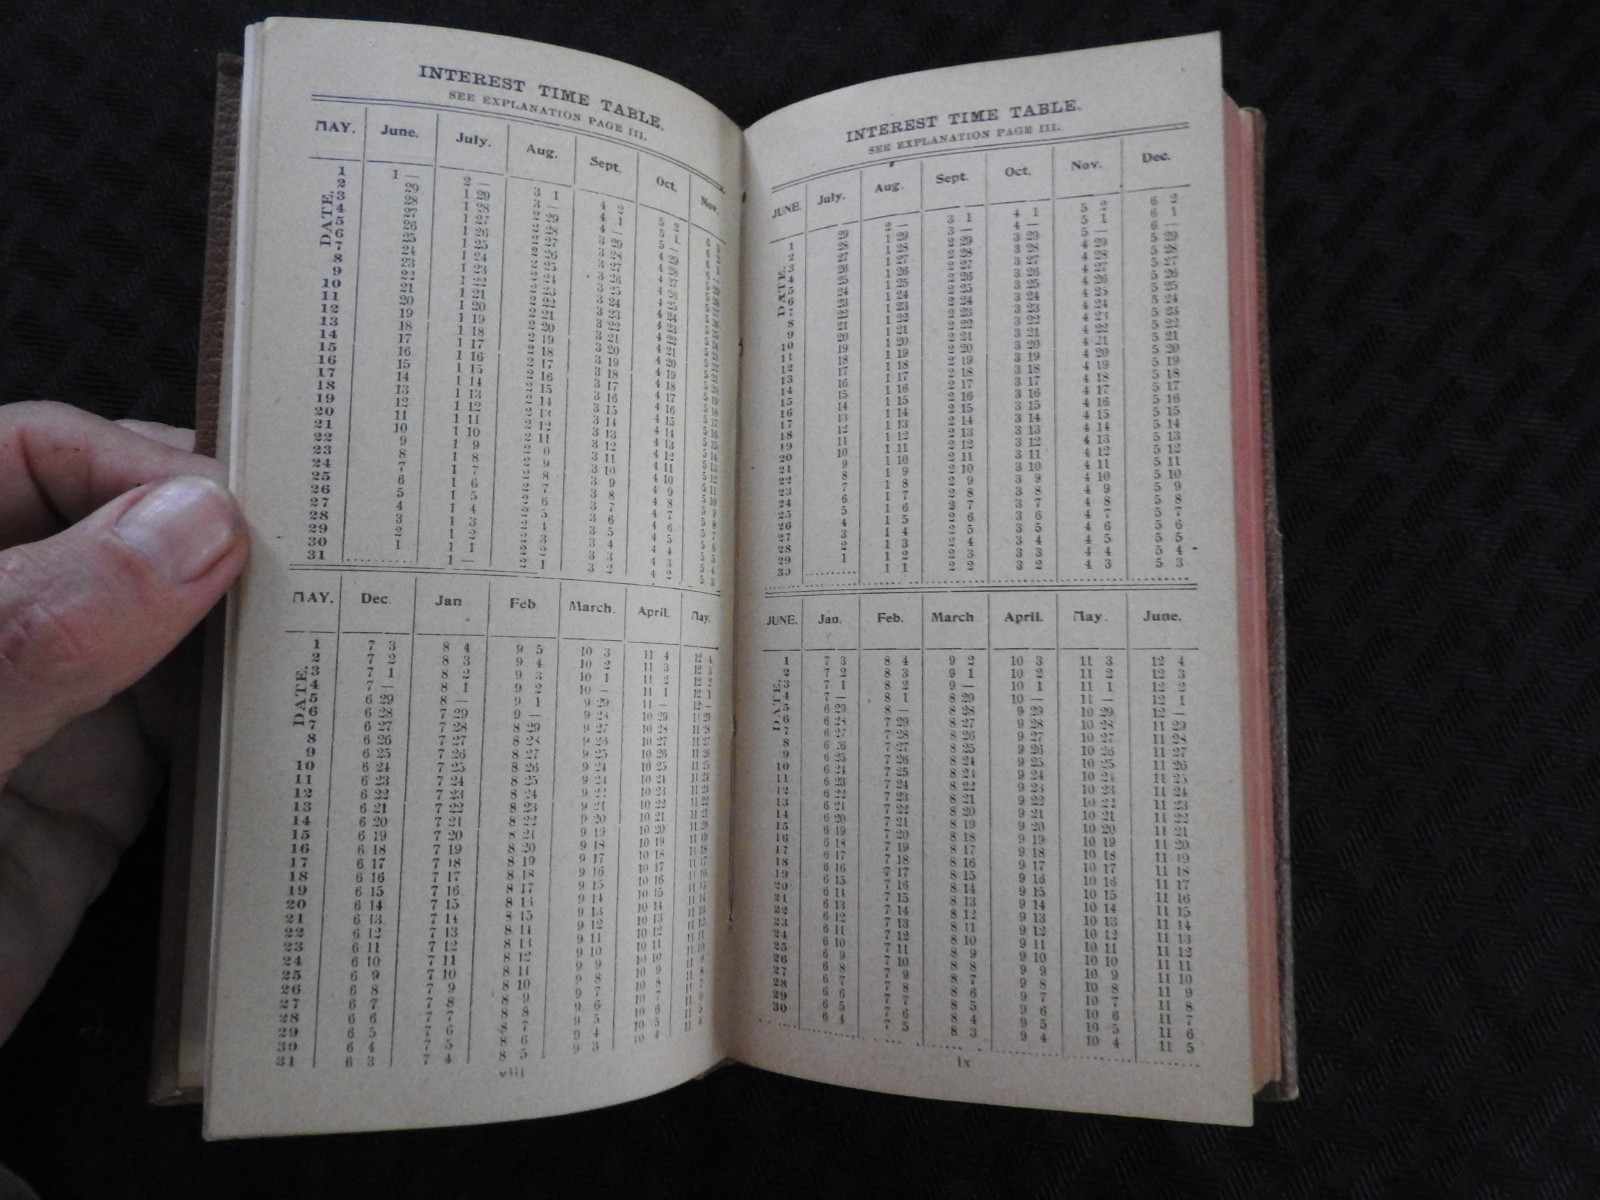 INTEREST TIME TABLE.
SEE EXPLANATION PAGE III.
MAY. June. July. Aug. Sept. Oct. Nov.
DATE.
1 1 — 2 — 3 1 4 2 5 2 6 3
2 29 1 29 3 — 4 1 5 1 6 2
3 28 1 28 2 29 4 — 5 — 6 1
4 27 1 27 2 28 3 29 4 29 6 —
5 26 1 26 2 27 3 28 4 28 5 29
6 25 1 25 2 26 3 27 4 27 5 28
7 24 1 24 2 25 3 26 4 26 5 27
8 23 1 23 2 24 3 25 4 25 5 26
9 22 1 22 2 23 3 24 4 24 5 25
10 21 1 21 2 22 3 23 4 23 5 24
11 20 1 20 2 21 3 22 4 22 5 23
12 19 1 19 2 20 3 21 4 21 5 22
13 18 1 18 2 19 3 20 4 20 5 21
14 17 1 17 2 18 3 19 4 19 5 20
15 16 1 16 2 17 3 18 4 18 5 19
16 15 1 15 2 16 3 17 4 17 5 18
17 14 1 14 2 15 3 16 4 16 5 17
18 13 1 13 2 14 3 15 4 15 5 16
19 12 1 12 2 13 3 14 4 14 5 15
20 11 1 11 2 12 3 13 4 13 5 14
21 10 1 10 2 11 3 12 4 12 5 13
22 9 1 9 2 10 3 11 4 11 5 12
23 8 1 8 2 9 3 10 4 10 5 11
24 7 1 7 2 8 3 9 4 9 5 10
25 6 1 6 2 7 3 8 4 8 5 9
26 5 1 5 2 6 3 7 4 7 5 8
27 4 1 4 2 5 3 6 4 6 5 7
28 3 1 3 2 4 3 5 4 5 5 6
29 2 1 2 2 3 3 4 4 4 5 5
30 1 1 1 2 2 3 3 4 3 5 4
31 .......... 1 — 2 1 3 2 4 2 5 3
MAY. Dec. Jan Feb March. April. May.
DATE.
1 7 3 8 4 9 5 10 3 11 4 12 4
2 7 2 8 3 9 4 10 2 11 3 12 3
3 7 1 8 2 9 3 10 1 11 2 12 2
4 7 — 8 1 9 2 10 — 11 1 12 1
5 6 29 8 — 9 1 9 29 11 — 12 —
6 6 28 7 29 9 — 9 28 10 29 11 29
7 6 27 7 28 8 29 9 27 10 28 11 28
8 6 26 7 27 8 28 9 26 10 27 11 27
9 6 25 7 26 8 27 9 25 10 26 11 26
10 6 24 7 25 8 26 9 24 10 25 11 25
11 6 23 7 24 8 25 9 23 10 24 11 24
12 6 22 7 23 8 24 9 22 10 23 11 23
13 6 21 7 22 8 23 9 21 10 22 11 22
14 6 20 7 21 8 22 9 20 10 21 11 21
15 6 19 7 20 8 21 9 19 10 20 11 20
16 6 18 7 19 8 20 9 18 10 19 11 19
17 6 17 7 18 8 19 9 17 10 18 11 18
18 6 16 7 17 8 18 9 16 10 17 11 17
19 6 15 7 16 8 17 9 15 10 16 11 16
20 6 14 7 15 8 16 9 14 10 15 11 15
21 6 13 7 14 8 15 9 13 10 14 11 14
22 6 12 7 13 8 14 9 12 10 13 11 13
23 6 11 7 12 8 13 9 11 10 12 11 12
24 6 10 7 11 8 12 9 10 10 11 11 11
25 6 9 7 10 8 11 9 9 10 10 11 10
26 6 8 7 9 8 10 9 8 10 9 11 9
27 6 7 7 8 8 9 9 7 10 8 11 8
28 6 6 7 7 8 8 9 6 10 7 11 7
29 6 5 7 6 8 7 9 5 10 6 11 6
30 6 4 7 5 8 6 9 4 10 5 11 5
31 6 3 7 4 8 5 9 3 10 4 11 4
viii
INTEREST TIME TABLE.
SEE EXPLANATION PAGE III.
JUNE. July. Aug. Sept. Oct. Nov. Dec.
DATE.
1 29 2 — 3 1 4 1 5 2 6 2
2 28 1 29 3 — 4 — 5 1 6 1
3 27 1 28 2 29 3 29 5 — 6 —
4 26 1 27 2 28 3 28 4 29 5 29
5 25 1 26 2 27 3 27 4 28 5 28
6 24 1 25 2 26 3 26 4 27 5 27
7 23 1 24 2 25 3 25 4 26 5 26
8 22 1 23 2 24 3 24 4 25 5 25
9 21 1 22 2 23 3 23 4 24 5 24
10 20 1 21 2 22 3 22 4 23 5 23
11 19 1 20 2 21 3 21 4 22 5 22
12 18 1 19 2 20 3 20 4 21 5 21
13 17 1 18 2 19 3 19 4 20 5 20
14 16 1 17 2 18 3 18 4 19 5 19
15 15 1 16 2 17 3 17 4 18 5 18
16 14 1 15 2 16 3 16 4 17 5 17
17 13 1 14 2 15 3 15 4 16 5 16
18 12 1 13 2 14 3 14 4 15 5 15
19 11 1 12 2 13 3 13 4 14 5 14
20 10 1 11 2 12 3 12 4 13 5 13
21 9 1 10 2 11 3 11 4 12 5 12
22 8 1 9 2 10 3 10 4 11 5 11
23 7 1 8 2 9 3 9 4 10 5 10
24 6 1 7 2 8 3 8 4 9 5 9
25 5 1 6 2 7 3 7 4 8 5 8
26 4 1 5 2 6 3 6 4 7 5 7
27 3 1 4 2 5 3 5 4 6 5 6
28 2 1 3 2 4 3 4 4 5 5 5
29 1 1 2 2 3 3 3 4 4 5 4
30 .......... 1 1 2 2 3 2 4 3 5 3
JUNE. Jan. Feb. March April. May. June.
DATE.
1 7 3 8 4 9 2 10 3 11 3 12 4
2 7 2 8 3 9 1 10 2 11 2 12 3
3 7 1 8 2 9 — 10 1 11 1 12 2
4 7 — 8 1 8 29 10 — 11 — 12 1
5 6 29 8 — 8 28 9 29 10 29 12 —
6 6 28 7 29 8 27 9 28 10 28 11 29
7 6 27 7 28 8 26 9 27 10 27 11 28
8 6 26 7 27 8 25 9 26 10 26 11 27
9 6 25 7 26 8 24 9 25 10 25 11 26
10 6 24 7 25 8 23 9 24 10 24 11 25
11 6 23 7 24 8 22 9 23 10 23 11 24
12 6 22 7 23 8 21 9 22 10 22 11 23
13 6 21 7 22 8 20 9 21 10 21 11 22
14 6 20 7 21 8 19 9 20 10 20 11 21
15 6 19 7 20 8 18 9 19 10 19 11 20
16 6 18 7 19 8 17 9 18 10 18 11 19
17 6 17 7 18 8 16 9 17 10 17 11 18
18 6 16 7 17 8 15 9 16 10 16 11 17
19 6 15 7 16 8 14 9 15 10 15 11 16
20 6 14 7 15 8 13 9 14 10 14 11 15
21 6 13 7 14 8 12 9 13 10 13 11 14
22 6 12 7 13 8 11 9 12 10 12 11 13
23 6 11 7 12 8 10 9 11 10 11 11 12
24 6 10 7 11 8 9 9 10 10 10 11 11
25 6 9 7 10 8 8 9 9 10 9 11 10
26 6 8 7 9 8 7 9 8 10 8 11 9
27 6 7 7 8 8 6 9 7 10 7 11 8
28 6 6 7 7 8 5 9 6 10 6 11 7
29 6 5 7 6 8 4 9 5 10 5 11 6
30 6 4 7 5 8 3 9 4 10 4 11 5
ix